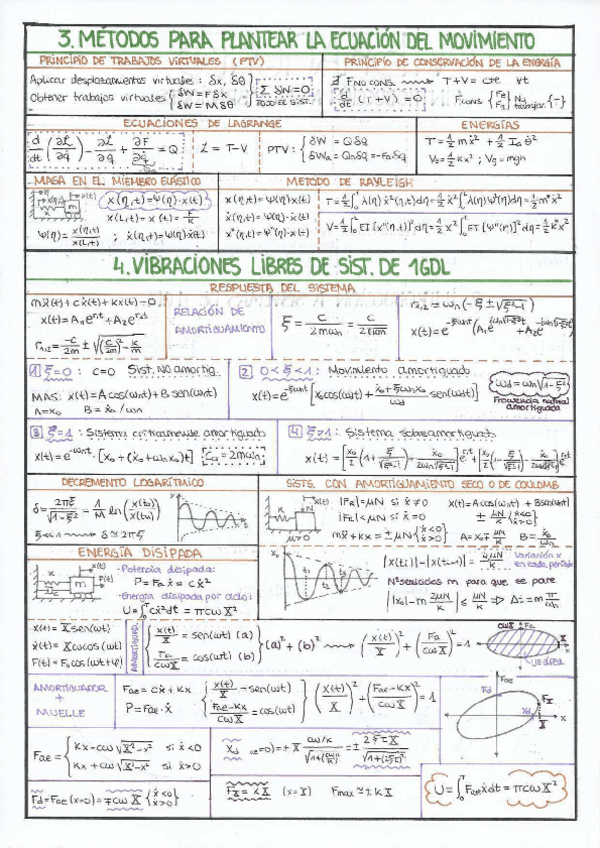 3. MÉTODOS PARA PLANTEAR LA ECUACIÓN DEL MOVIMIENTO
PRINCIPIO DE TRABAJOS VIRTUALES (PTV)
Aplicar desplazamientos virtuales: δx, δθ
Obtener trabajos virtuales { δW = Fδx
δW = Mδθ
Σ δW = 0
TODO EL SIST.
PRINCIPIO DE CONSERVACIÓN DE LA ENERGÍA
∄ F NO CONS. → T+V = cte ∀t
d/dt (T+V) = 0
F cons { Fe
Fg } No trabajar {T}
ECUACIONES DE LAGRANGE
d/dt (∂L/∂q̇) − ∂L/∂q + ∂F/∂q̇ = Q
L = T−V
PTV: { δW = Qδq
ENERGÍAS
T = 1/2 mẋ² + 1/2 I₀ θ̇²
Ve = 1/2 kx² ; Vg = mgh
MASA EN EL MIEMBRO ELÁSTICO
x(η,t) = ψ(η)·x(t)
x(L,t) = x(t) =
ψ(η) = x(η,t)/x(L,t) ; ẋ(η,t) = ψ(η)·ẋ(t)
MÉTODO DE RAYLEIGH
x(η,t) = ψ(η)·x(t)
ẋ(η,t) = ψ(η)·ẋ(t)
x''(η,t) = ψ''(η)·x(t)
T = 1/2 ∫ λ(η) ẋ²(η,t)dη = 1/2 ẋ² ∫ λ(η)ψ²(η)dη = 1/2 m*ẋ²
V = 1/2 ∫ EI [x''(η,t)]² dη = 1/2 x² ∫ EI [ψ''(η)]² dη = 1/2 k*x²
4. VIBRACIONES LIBRES DE SIST. DE 1GDL
RESPUESTA DEL SISTEMA
mẍ(t) + cẋ(t) + kx(t) = 0
x(t) = A₁e^r₁t + A₂e^r₂t
r₁,₂ = −c/2m ± √((c/2m)² − k/m)
RELACIÓN DE AMORTIGUAMIENTO
ξ = c/2mωn = c/2√km
r₁,₂ = ωn(−ξ ± √(ξ²−1))
x(t) = e^−ξωnt (A₁e + A₂e)
1 ξ=0: c=0 Sist. NO amortig.
MAS: x(t) = A cos(ωnt) + B sen(ωnt)
A = x₀ B = ẋ₀/ωn
2 0<ξ<1: Movimiento amortiguado
x(t) = e^−ξωnt [x₀cos(ωdt) + (ẋ₀+ξωnx₀)/ωd sen(ωdt)]
ωd = ωn√(1−ξ²)
Frecuencia natural amortiguada
3 ξ=1: Sistema críticamente amortiguado
x(t) = e^−ωnt·[x₀ + (ẋ₀ + ωnx₀)t] Ccr = 2mωn
4 ξ>1: Sistema sobreamortiguado
DECREMENTO LOGARÍTMICO
δ = 2πξ/√(1−ξ²) = 1/M ln(x(t₀)/x(tM))
ξ<<1 → δ ≃ 2πξ
SISTS. CON AMORTIGUAMIENTO SECO O DE COULOMB
μ>0
|FR| = μN si ẋ ≠ 0
|FR| < μN si ẋ = 0
mẍ + kx = ± μN {ẋ<0
ẋ>0}
x(t) = A cos(ωnt) + B sen(ωnt)
± μN/k {ẋ<0
ẋ>0}
A = x₀ ∓ μN/k B = ẋ₀/ωn
|x(ti)| − |x(ti+1)| = 4μN/k Variación x en cada período
Nº semiciclos m para que se pare
|x₀| − m 2μN/k ≤ μN/k ⇒ Δt = m π/ωn
ENERGÍA DISIPADA
·Potencia disipada:
P = Fa·ẋ = cẋ²
·Energía disipada por ciclo:
U = ∫ cẋ²dt = πcωX²
x(t) = X sen(ωt)
ẋ(t) = Xω cos(ωt)
F(t) = F₀ cos(ωt+φ)
AMORTIGUAD.
{ x(t)/X = sen(ωt) (a)
Fa/cωX = cos(ωt) (b)
(a)² + (b)² → (x(t)/X)² + (Fa/cωX)² = 1
cωX Fa
U = área
AMORTIGUADOR + MUELLE
Fae = cẋ + kx
P = Fae·ẋ
{ x(t)/X = sen(ωt)
(Fae−kx)/cωX = cos(ωt)
(x(t)/X)² + ((Fae−kx)/cωX)² = 1
Fae = { kx − cω√(X²−x²) si ẋ<0
kx + cω√(X²−x²) si ẋ>0
Fd = Fae(x=0) = ∓cωX {ẋ<0
ẋ>0}
(x=X)
Fmax ≃ ±kX
U = ∫ Fae ẋdt = πcωX²